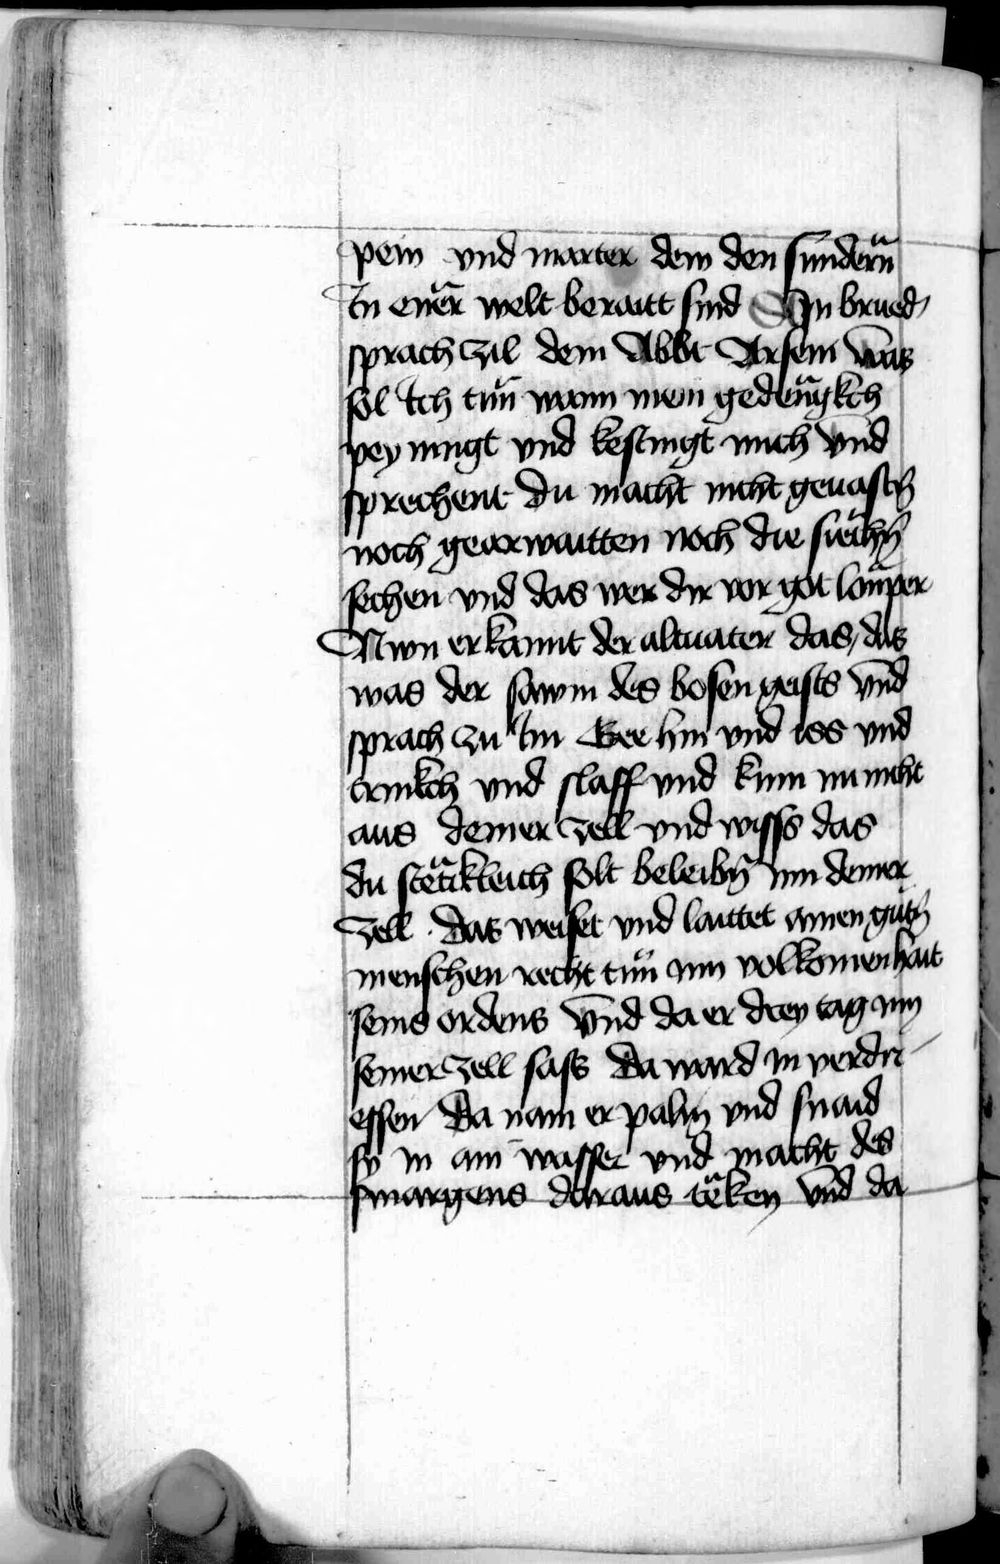 pein vnd marter dem den sündern
In ener welt beraitt sind Ain brued
sprach zil dem Abbt Arsem was
sol Ich tün wann mein gedengkch
peyningt vnd kestingt mich vnd
sprechent du macht nicht geuastn
noch gearwaitten noch die siechn
sechen vnd das wer dir vor got lonper
Nwn erkannt der altuater das / das
was der sawm des bosen geists vnd
sprach zu Im Gee hin vnd iss vnd
trinkch vnd slaff vnd kum nu nicht
aus deiner zell vnd wisss das
du stetikleich solt beleibn inn deiner
zell . Das weiset vnd laittet ainen gutn
menschen recht tün inn volkomenhait
seins ordens vnd da er drey tag inn
seiner zell sass Da ward in verdri
essen Da nam er palm vnd snaid
sy in ain wasser vnd macht des
smargens daraus teken vnd da